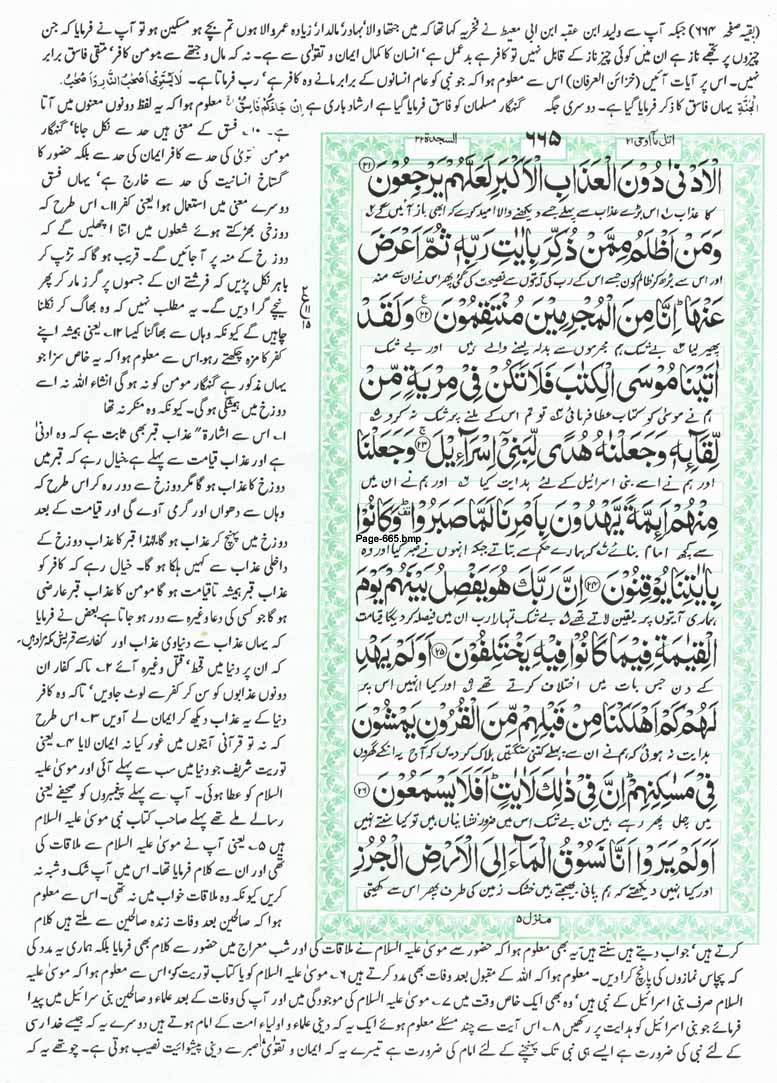 (بقیہ صفحہ ۶۶۴) جبکہ آپ سے ولید ابن عقبہ ابن ابی معیط نے فخریہ کہا تھا کہ میں جتھا والا' بہادر' مالدار' زیادہ عمر والا ہوں تم بچے ہو مسکین ہو تو آپ نے فرمایا کہ جن
چیزوں پر تجھے ناز ہے ان میں کوئی چیز ناز کے قابل نہیں تو کافر ہے بدعمل ہے' انسان کا کمال ایمان و تقویٰ سے ہے۔ نہ کہ مال و جتھے سے مومن کافر' متقی فاسق برابر
نہیں۔ اس پر آیات آئیں (خزائن العرفان) اس سے معلوم ہوا کہ جو نبی کو عام انسانوں کے برابر مانے وہ کافر ہے' رب فرماتا ہے۔ لَا يَسْتَوِىٓ اَصْحٰبُ النَّارِ وَاَصْحٰبُ
الْجَنَّةِ یہاں فاسق کا ذکر فرمایا گیا ہے۔ دوسری جگہ گنہگار مسلمان کو فاسق فرمایا گیا ہے ارشاد باری ہے اِنْ جَآءَكُمْ فَاسِقٌ معلوم ہوا کہ یہ لفظ دونوں معنوں میں آتا
ہے۔ ۱۰۔ فسق کے معنی ہیں حد سے نکل جانا' گنہگار
مومن تقویٰ کی حد سے کافر ایمان کی حد سے بلکہ حضور کا
گستاخ انسانیت کی حد سے خارج ہے' یہاں فسق
دوسرے معنی میں استعمال ہوا یعنی کفر ۱۱۔ اس طرح کہ
دوزخی بھڑکتے ہوئے شعلوں میں اتنا اچھلیں گے کہ
دوزخ کے منہ پر آ جائیں گے۔ قریب ہو گا کہ تڑپ کر
باہر نکل پڑیں کہ فرشتے ان کے جسموں پر گرز مار کر پھر
نیچے گرا دیں گے۔ یہ مطلب نہیں کہ وہ بھاگ کر نکلنا
چاہیں گے کیونکہ وہاں سے بھاگنا کیسا ۱۲۔ یعنی ہمیشہ اپنے
کفر کا مزہ چکھتے رہو۔ اس سے معلوم ہوا کہ یہ خاص سزا جو
یہاں مذکور ہے گنہگار مومن کو نہ ہو گی انشاء اللہ نہ اسے
دوزخ میں ہمیشگی ہو گی۔ کیونکہ وہ منکر نہ تھا
۱۔ اس سے اشارۃً عذاب قبر بھی ثابت ہے کہ وہ ادنیٰ
ہے اور عذاب قیامت سے پہلے ہے خیال رہے کہ قبر میں
دوزخ کا عذاب ہو گا مگر دوزخ سے دور رہ کر اس طرح کہ
وہاں سے دھواں اور گرمی آوے گی اور قیامت کے بعد
دوزخ میں پہنچ کر عذاب ہو گا لہذا قبر کا عذاب دوزخ کے
داخلی عذاب سے کہیں ہلکا ہو گا۔ خیال رہے کہ کافر کو
عذاب قبر ہمیشہ تاقیامت ہو گا مومن کا عذاب قبر عارضی
ہو گا جو کسی کی دعا وغیرہ سے دور ہو جاتا ہے بعض نے فرمایا
کہ یہاں عذاب سے دنیاوی عذاب اور کفار سے قریش مکہ مراد ہیں۔
کہ ان پر دنیا میں قحط' قتل وغیرہ آئے ۲۔ تاکہ کفار ان
دونوں عذابوں کو سن کر کفر سے لوٹ جاویں' تاکہ وہ کافر
دنیا کے یہ عذاب دیکھ کر ایمان لے آویں ۳۔ اس طرح
کہ نہ تو قرآنی آیتوں میں غور کیا نہ ایمان لایا ۴۔ یعنی
توریت شریف جو دنیا میں سب سے پہلے آئی اور موسیٰ علیہ
السلام کو عطا ہوئی۔ آپ سے پہلے پیغمبروں کو صحیفے یعنی
رسالے ملے تھے پہلے صاحب کتاب نبی موسیٰ علیہ السلام
ہیں ۵۔ یعنی آپ نے موسیٰ علیہ السلام سے ملاقات کی
تھی اور ان سے کلام فرمایا تھا۔ اس میں آپ شک و شبہ نہ
کریں کیونکہ وہ ملاقات خواب میں نہ تھی۔ اس سے معلوم
ہوا کہ صالحین بعد وفات زندہ صالحین سے ملتے ہیں کلام
اتل ما اوحی ۲۱ ۶۶۵ السجدۃ ۳۲
الْاَدْنٰى دُوْنَ الْعَذَابِ الْاَكْبَرِ لَعَلَّهُمْ يَرْجِعُوْنَ ﴿۲۱﴾
کا عذاب اس بڑے عذاب سے پہلے جسے دیکھنے والا امید کرے کہ ابھی باز آئیں گے
وَمَنْ اَظْلَمُ مِمَّنْ ذُكِّرَ بِاٰيٰتِ رَبِّهٖ ثُمَّ اَعْرَضَ
اور اس سے بڑھ کر ظالم کون جسے اس کے رب کی آیتوں سے نصیحت کی گئی پھر اس نے ان سے منہ
عَنْهَا ؕ اِنَّا مِنَ الْمُجْرِمِيْنَ مُنْتَقِمُوْنَ ﴿۲۲﴾ وَلَقَدْ
پھیر لیا بے شک ہم مجرموں سے بدلہ لینے والے ہیں اور بے شک
اٰتَيْنَا مُوْسَى الْكِتٰبَ فَلَا تَكُنْ فِيْ مِرْيَةٍ مِّنْ
ہم نے موسیٰ کو کتاب عطا فرمائی تو تم اس کے ملنے پر شک نہ کرو
لِّقَآئِهٖ وَجَعَلْنٰهُ هُدًى لِّبَنِيْٓ اِسْرَآءِيْلَ ﴿۲۳﴾ وَجَعَلْنَا
اور ہم نے اسے بنی اسرائیل کے لئے ہدایت کیا اور ہم نے ان میں
مِنْهُمْ اَئِمَّةً يَّهْدُوْنَ بِاَمْرِنَا لَمَّا صَبَرُوْا ؕ وَكَانُوْا
Page-665.bmp
سے کچھ امام بنائے کہ ہمارے حکم سے بتاتے جبکہ انہوں نے صبر کیا اور وہ
بِاٰيٰتِنَا يُوْقِنُوْنَ ﴿۲۴﴾ اِنَّ رَبَّكَ هُوَ يَفْصِلُ بَيْنَهُمْ يَوْمَ
ہماری آیتوں پر یقین لاتے تھے بے شک تمہارا رب ان میں فیصلہ کر دیگا قیامت
الْقِيٰمَةِ فِيْمَا كَانُوْا فِيْهِ يَخْتَلِفُوْنَ ﴿۲۵﴾ اَوَلَمْ يَهْدِ
کے دن جس بات میں اختلاف کرتے تھے اور کیا انہیں اس پر
لَهُمْ كَمْ اَهْلَكْنَا مِنْ قَبْلِهِمْ مِّنَ الْقُرُوْنِ يَمْشُوْنَ
ہدایت نہ ہوئی کہ ہم نے ان سے پہلے کتنی سنگتیں ہلاک کر دیں کہ آج یہ انکے گھروں
فِيْ مَسٰكِنِهِمْ ؕ اِنَّ فِيْ ذٰلِكَ لَاٰيٰتٍ ؕ اَفَلَا يَسْمَعُوْنَ ﴿۲۶﴾
میں چل پھر رہے ہیں بے شک اس میں ضرور نشانیاں ہیں تو کیا سنتے نہیں
اَوَلَمْ يَرَوْا اَنَّا نَسُوْقُ الْمَآءَ اِلَى الْاَرْضِ الْجُرُزِ
اور کیا نہیں دیکھتے کہ ہم پانی بھیجتے ہیں خشک زمین کی طرف پھر اس سے کھیتی
منزل ۵
ع ۲ ۱۱ ۱۵
کرتے ہیں' جواب دیتے ہیں سنتے ہیں یہ بھی معلوم ہوا کہ حضور سے موسیٰ علیہ السلام نے ملاقات کی اور شب معراج میں حضور سے کلام بھی فرمایا بلکہ ہماری یہ مدد کی
کہ پچاس نمازوں کی پانچ کرا دیں۔ معلوم ہوا کہ اللہ کے مقبول بعد وفات بھی مدد کرتے ہیں ۶۔ موسیٰ علیہ السلام کو یا کتاب توریت کو' اس سے معلوم ہوا کہ موسیٰ علیہ
السلام صرف بنی اسرائیل کے نبی ہیں' وہ بھی ایک خاص وقت میں ۷۔ موسیٰ علیہ السلام کی موجودگی میں اور آپ کی وفات کے بعد علماء و صالحین بنی اسرائیل میں پیدا
فرمائے جو بنی اسرائیل کو ہدایت پر رکھیں ۸۔ اس آیت سے چند مسئلے معلوم ہوئے ایک یہ کہ دینی علماء و اولیاء امت کے امام ہوتے ہیں دوسرے یہ کہ جیسے خدا رسی
کے لئے نبی کی ضرورت ہے ایسے ہی نبی تک پہنچنے کے لئے امام کی ضرورت ہے تیسرے یہ کہ ایمان و تقویٰ صبر سے دینی پیشوائیت نصیب ہوتی ہے۔ چوتھے یہ کہ